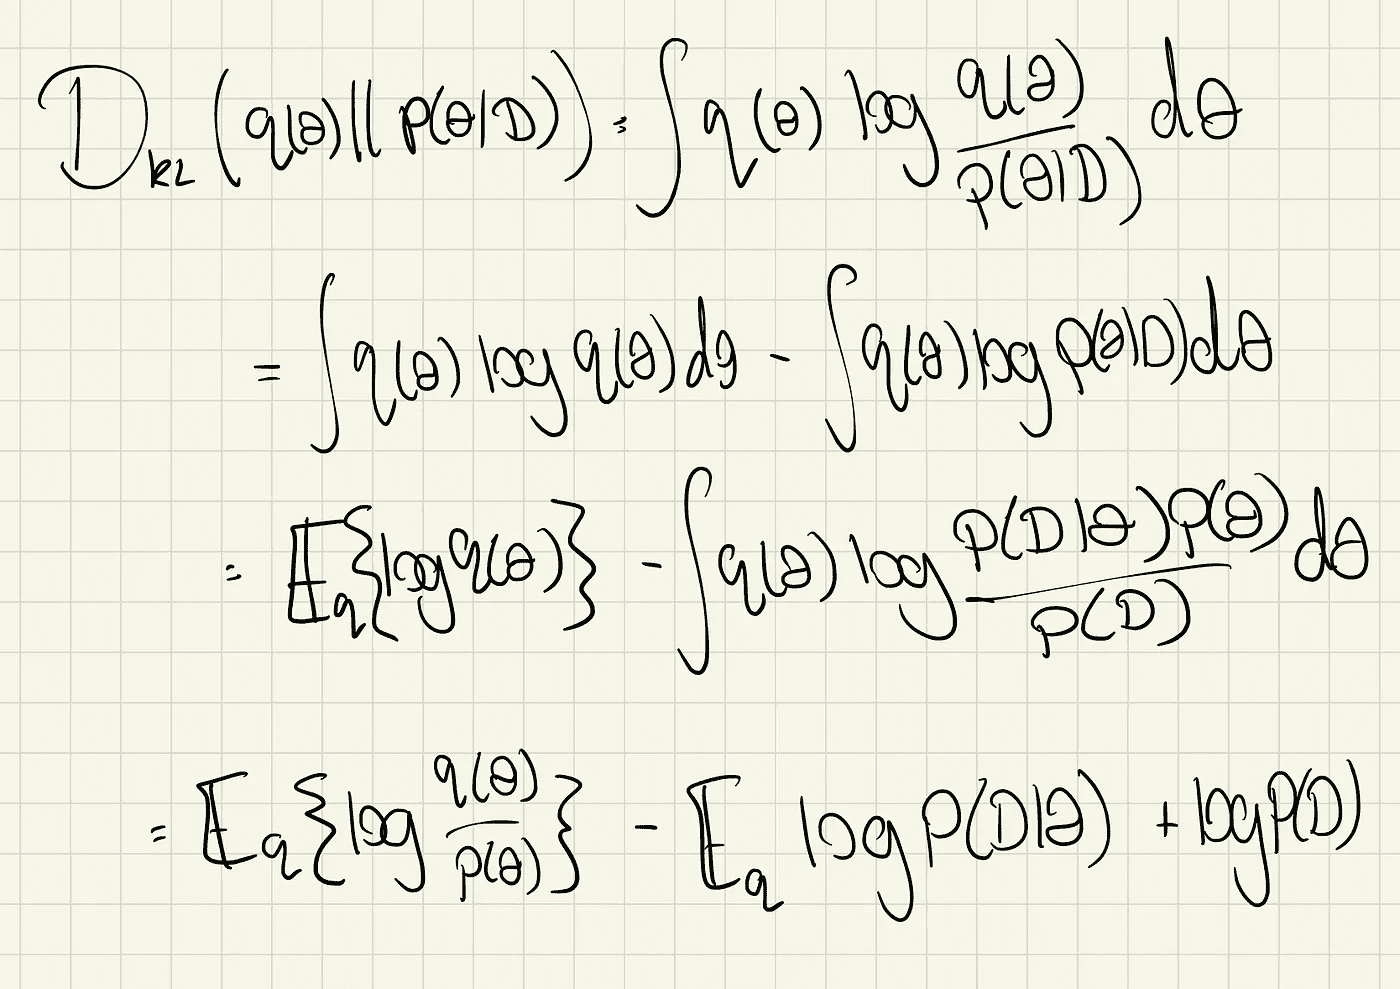 D_{KL}(q(θ)||p(θ|D)) = ∫ q(θ) log \frac{q(θ)}{p(θ|D)} dθ
= ∫ q(θ) log q(θ) dθ - ∫ q(θ) log p(θ|D) dθ
= 𝔼_q{log q(θ)} - ∫ q(θ) log \frac{p(D|θ)p(θ)}{p(D)} dθ
= 𝔼_q{log \frac{q(θ)}{p(θ)}} - 𝔼_q log p(D|θ) + log p(D)